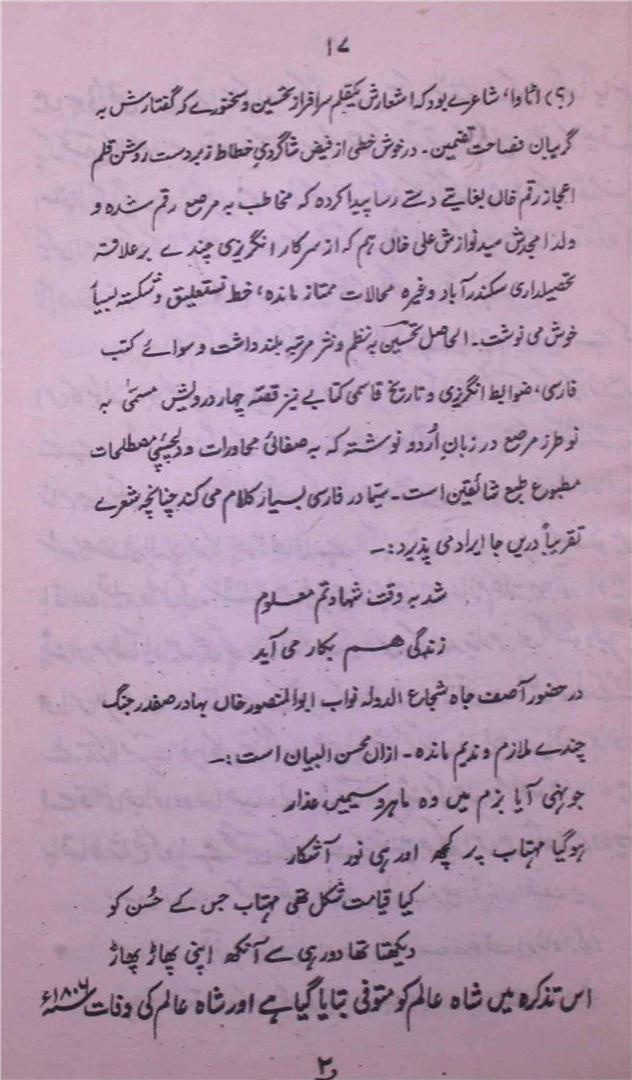 ۱۷
(؟) اٹاوا، شاعرے بود کہ اشعارش یکقلم سرافراز تحسین و سخنورے کہ گفتارش بہ
گریبان فصاحت تضمین۔ در خوش خطی از فیض شاگردیِ خطاط زبردست روشن قلم
اعجاز رقم خاں بغایتے دستے رسا پیدا کردہ کہ مخاطب بہ مرصع رقم شدہ و
ولد امجدش سید نوازش علی خاں ہم کہ از سرکار انگریزی چندے بر علاقہ
تحصیلداری سکندر آباد وغیرہ محالات ممتاز ماندہ، خط نستعلیق و شکستہ بسیار
خوش می نوشت۔ الحاصل تحسین بہ نظم و نثر مرتبہ بلند داشت و سوائے کتب
فارسی، ضوابط انگریزی و تاریخ قاسمی کتابے نیز قصّہ چہار درویش مسمّیٰ بہ
نو طرز مرصع در زبان اُردو نوشتہ کہ بہ صفائی محاورات و دلچسپیِ مصطلحات
مطبوع طبع شائقین است۔ سیّما در فارسی بسیار کلام می کند چنانچہ شعرے
تقریباً دریں جا ایراد می پذیرد:۔
شد بہ وقت شہادتم معلوم
زندگی ہم بکار می آید
در حضور آصف جاہ شجاع الدولہ نواب ابوالمنصور خاں بہادر صفدر جنگ
چندے ملازم و ندیم ماندہ۔ ازاں محسن البیان است:۔
جونہی آیا بزم میں وہ ماہرو سیمیں عذار
ہو گیا مہتاب پر کچھ اور ہی نور آشکار
کیا قیامت شکل تھی مہتاب جس کے حُسن کو
دیکھتا تھا دور ہی سے آنکھ اپنی پھاڑ پھاڑ
اس تذکرہ میں شاہ عالم کو متوفی بتایا گیا ہے اور شاہ عالم کی وفات سنہ ۱۸۰۶ء
۲